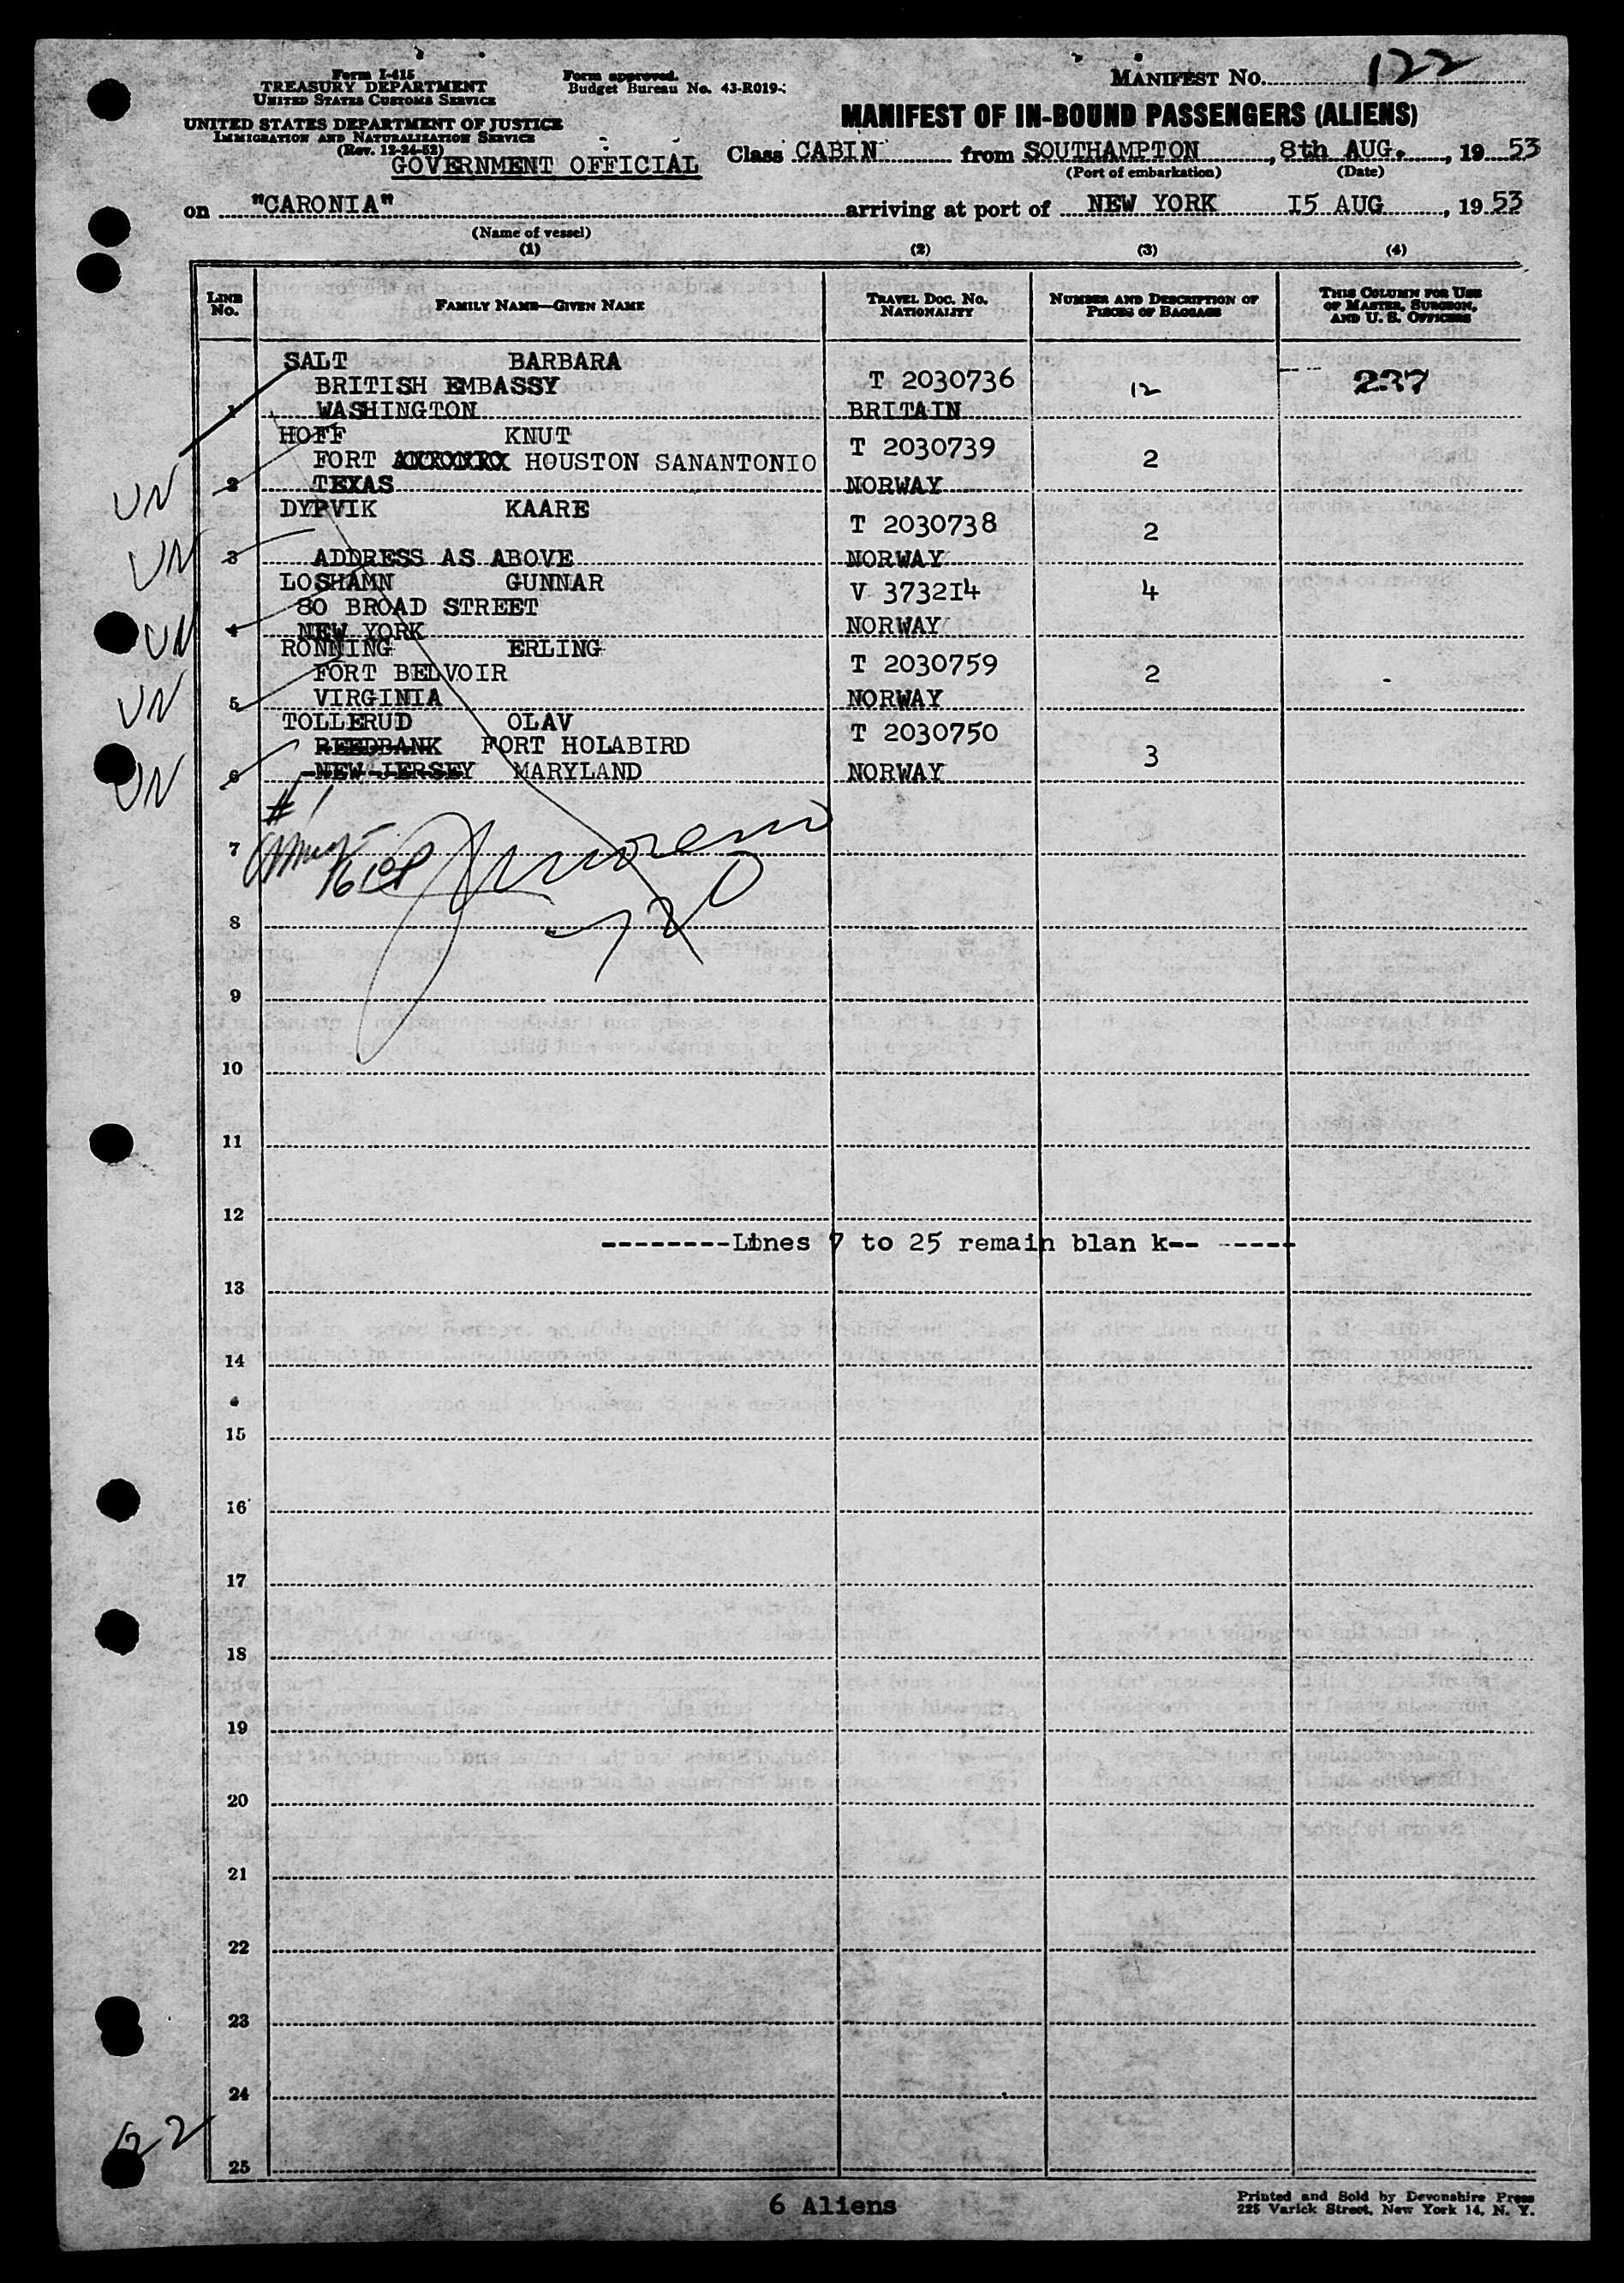 Form I-415
TREASURY DEPARTMENT
UNITED STATES CUSTOMS SERVICE
Form approved.
Budget Bureau No. 43-R019-
MANIFEST NO. 122
UNITED STATES DEPARTMENT OF JUSTICE
IMMIGRATION AND NATURALIZATION SERVICE
(Rev. 12-24-52)
GOVERNMENT OFFICIAL
MANIFEST OF IN-BOUND PASSENGERS (ALIENS)
Class CABIN from SOUTHAMPTON, 8th AUG., 19 53
(Port of embarkation) (Date)
on "CARONIA" arriving at port of NEW YORK 15 AUG, 19 53
(Name of vessel)
(1) (2) (3) (4)
LINE NO. FAMILY NAME—GIVEN NAME TRAVEL DOC. NO. NATIONALITY NUMBER AND DESCRIPTION OF PIECES OF BAGGAGE THIS COLUMN FOR USE OF MASTER, SURGEON, AND U. S. OFFICERS
SALT BARBARA
BRITISH EMBASSY T 2030736 12 237
1 WASHINGTON BRITAIN
HOFF KNUT
FORT XXXXXXX HOUSTON SANANTONIO T 2030739 2
UN 2 TEXAS NORWAY
DYPVIK KAARE
T 2030738 2
UN 3 ADDRESS AS ABOVE NORWAY
LOSHAMN GUNNAR
80 BROAD STREET V 373214 4
UN 4 NEW YORK NORWAY
RONNING ERLING
FORT BELVOIR T 2030759 2
UN 5 VIRGINIA NORWAY
TOLLERUD OLAV
REEDBANK FORT HOLABIRD T 2030750 3
UN 6 NEW JERSEY MARYLAND NORWAY
# 1
7
720
8
9
10
11
12
--------Lines 7 to 25 remain blan k-- -----
13
14
15
16
17
18
19
20
21
22
23
24
122
25
6 Aliens
Printed and Sold by Devonshire Press
225 Varick Street, New York 14, N. Y.